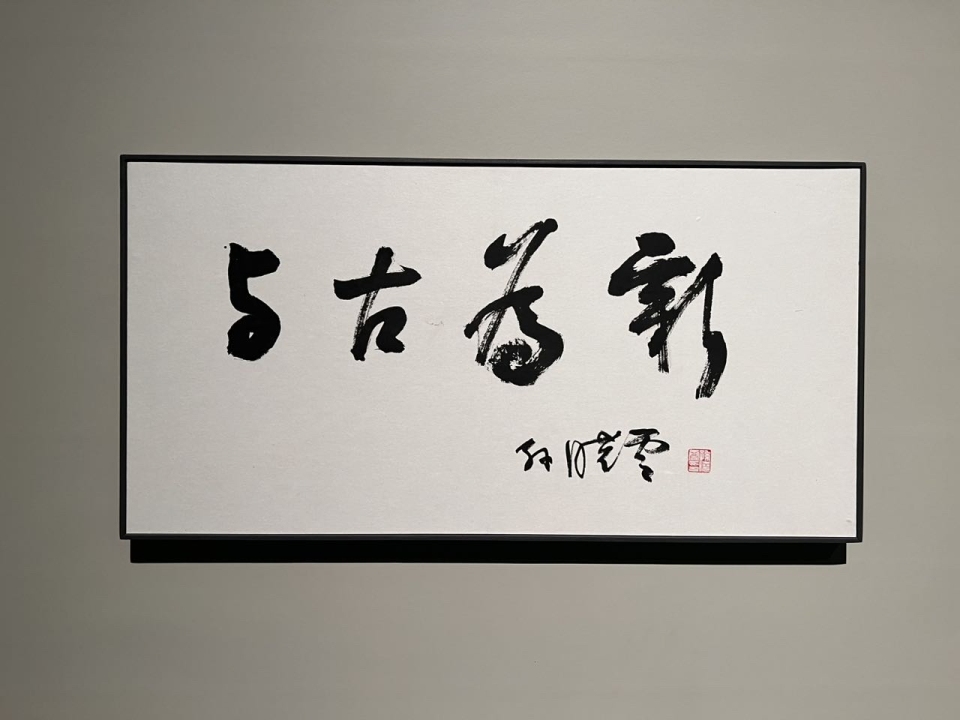 与古为新
孙晓云